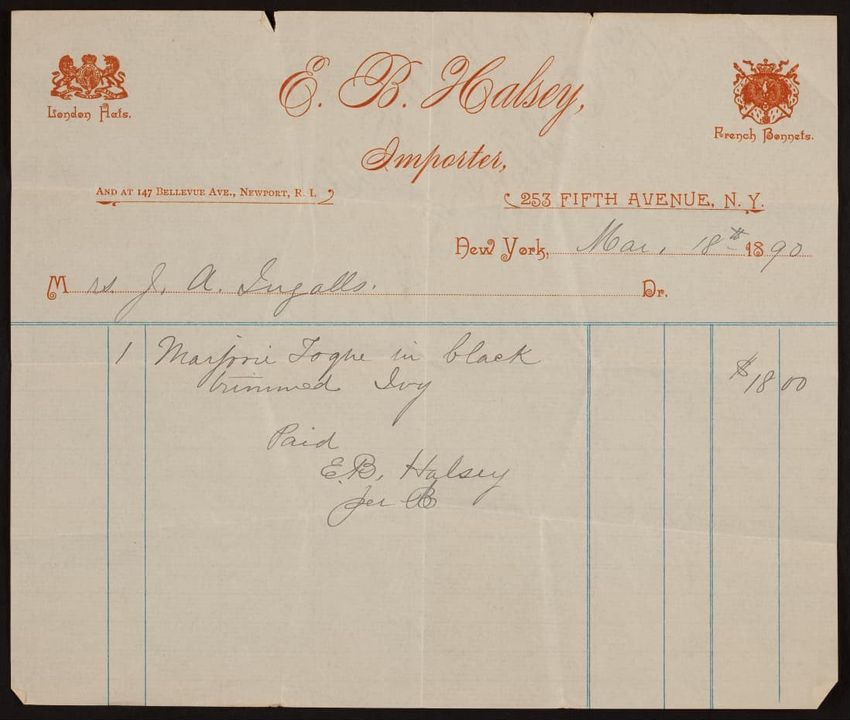 London Hats.
E. B. Halsey,
Importer,
French Bonnets.
AND AT 147 BELLEVUE AVE., NEWPORT, R. I.
253 FIFTH AVENUE, N. Y.
New York, Mar. 18th 1890
Mrs. J. A. Ingalls. Dr.
1 Marjorie Toque in black
trimmed Ivy $18 00
Paid
E.B. Halsey
per B